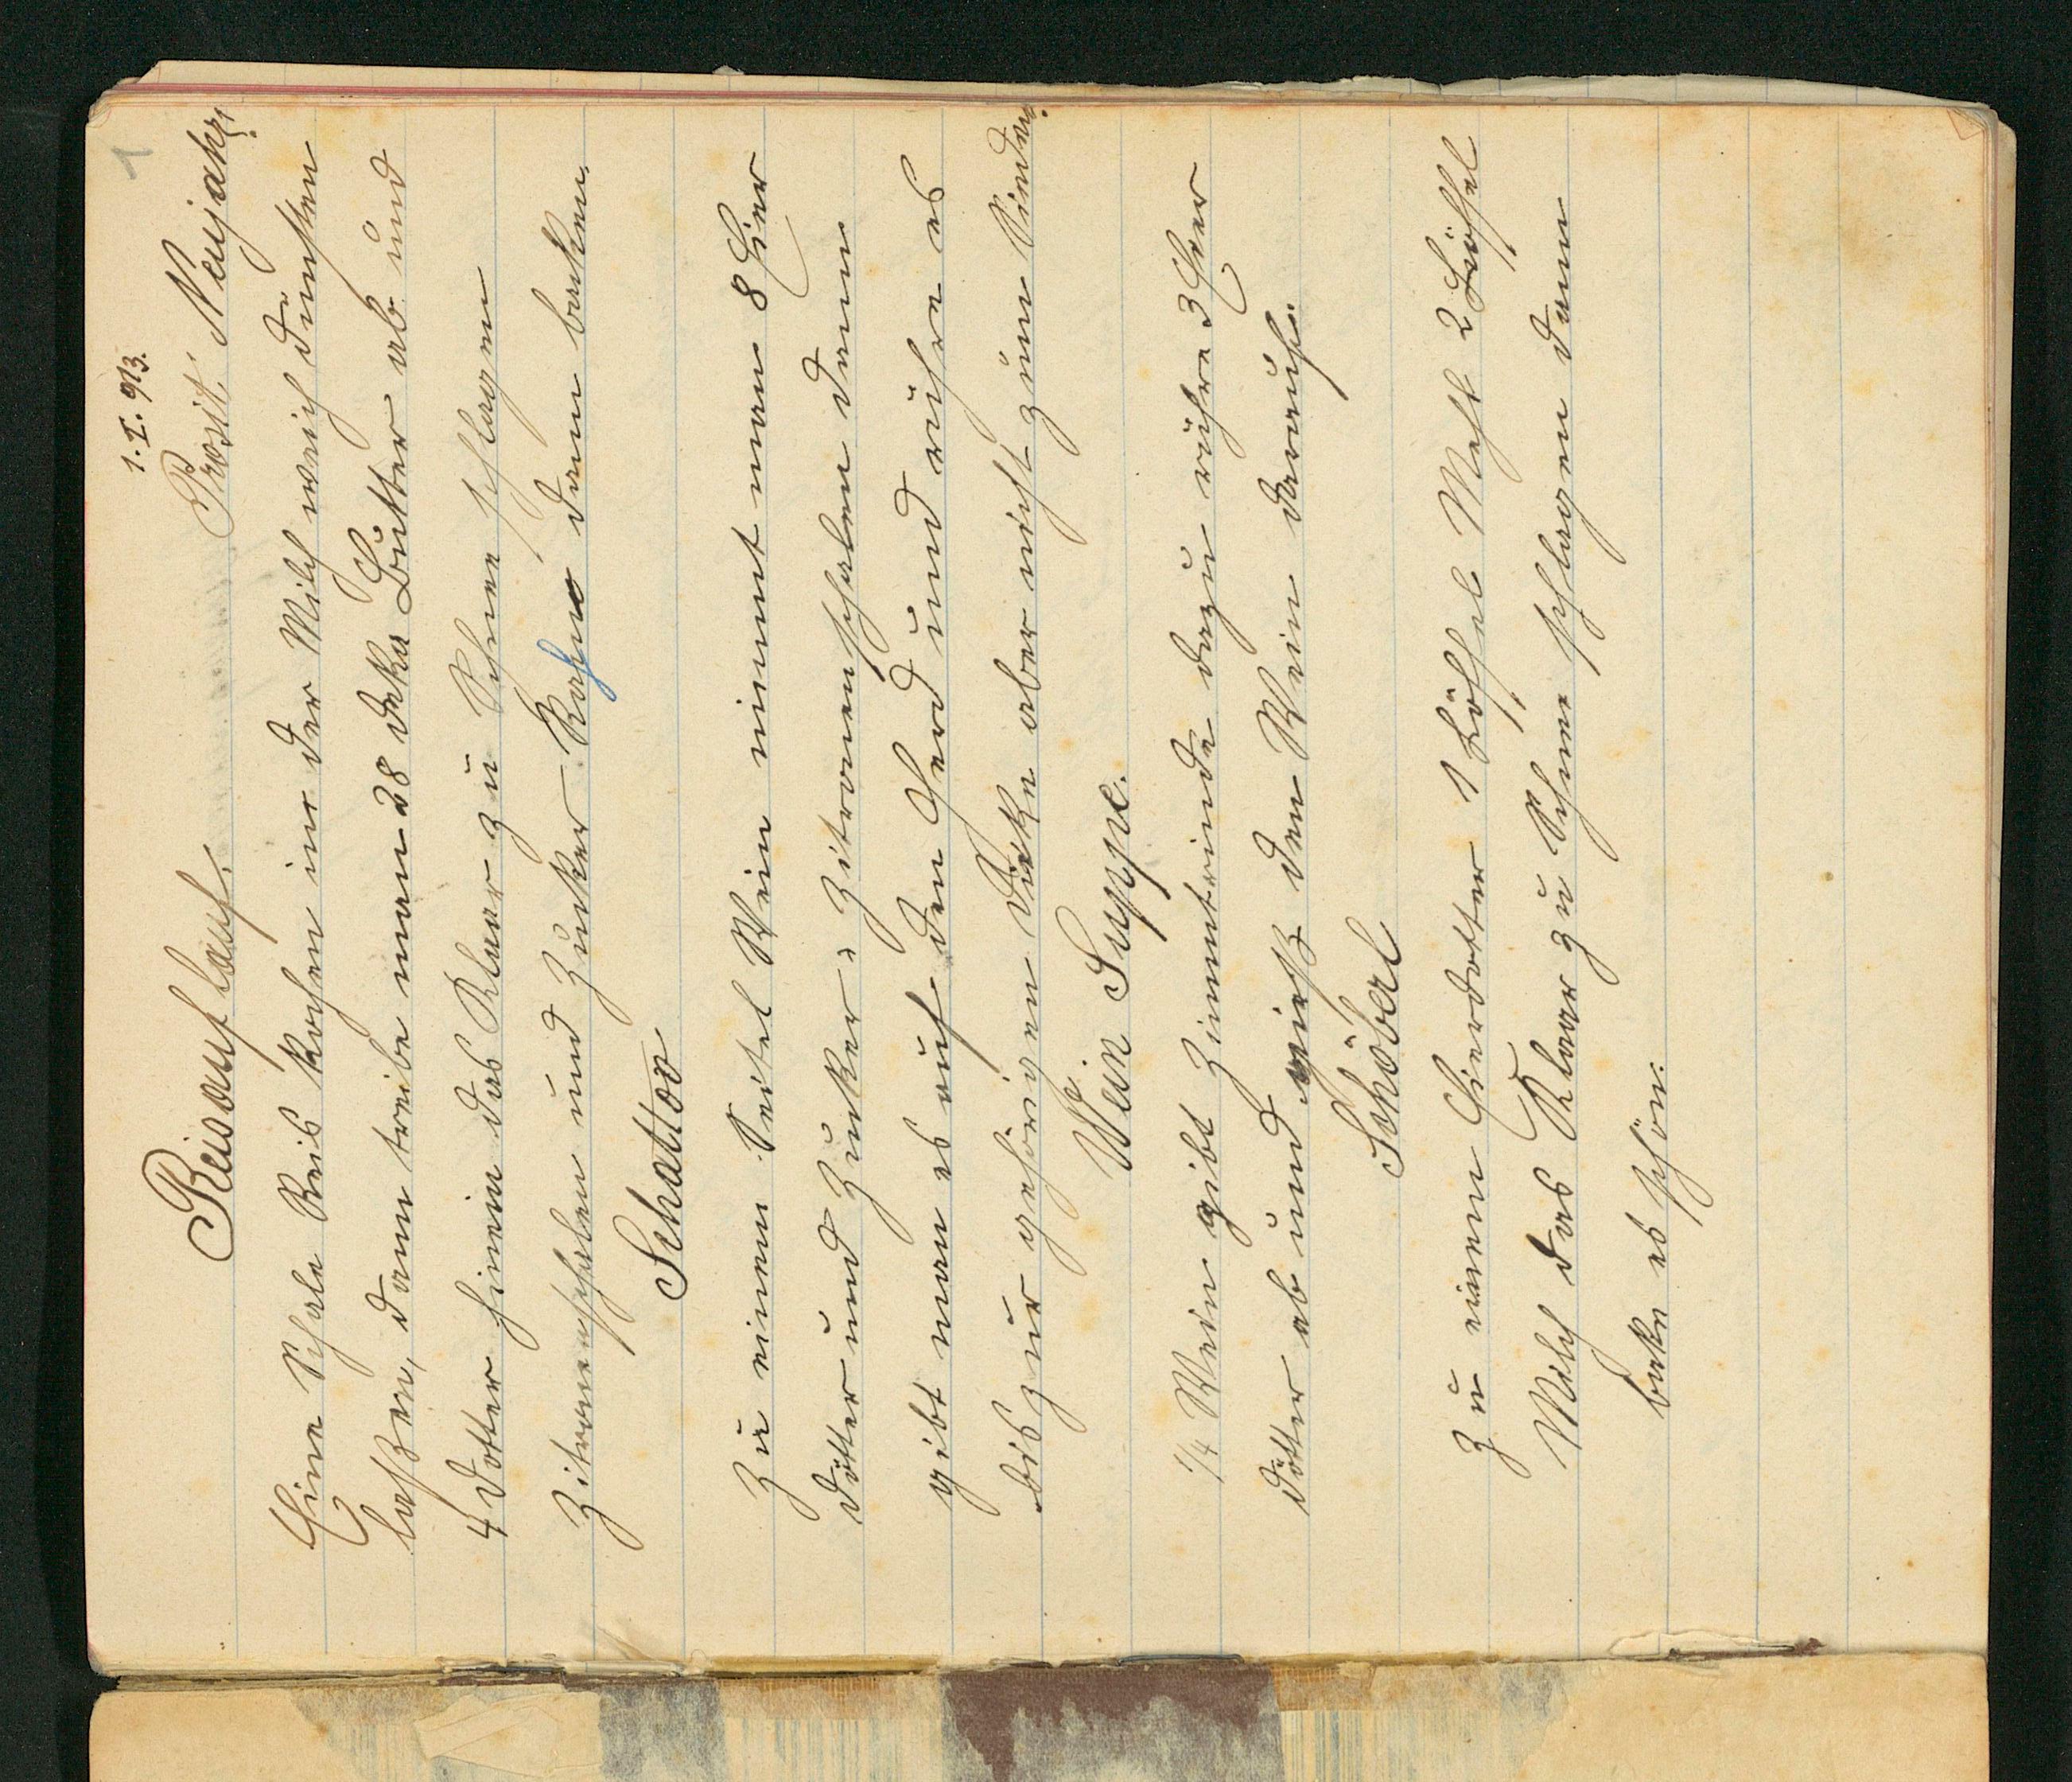 1
1. I. 913.
Prosit Neujahr.
Reisauflauf.
Eine Schale Reis kochen in der Milch weich dünsten
laßen, dann treibe man 28 deka Butter ab und
4 Dotter hinein das Klaar zu Schnee schlagen
Zitronenschalen und Zucker Rahm dann backen.
Schatto
Zu einem Seitel Wein nimmt man 8 Eier
dotter und Zucker, Zitronenschalen dann
gibt man es auf den Herd und rühre es
bis zur gehörigen Dicke aber nicht zum Sieden.
Wein Suppe.
1/4 Wein gibt Zimmtrinde dazu rühre 3 Eier
dotter ab und gieß den Wein darauf.
Schöberl
Zu einem Eierdotter 1 Löffel Mehl 2 Löffel
Milch das Klaar zu Schnee schlagen dann
backe es schön.